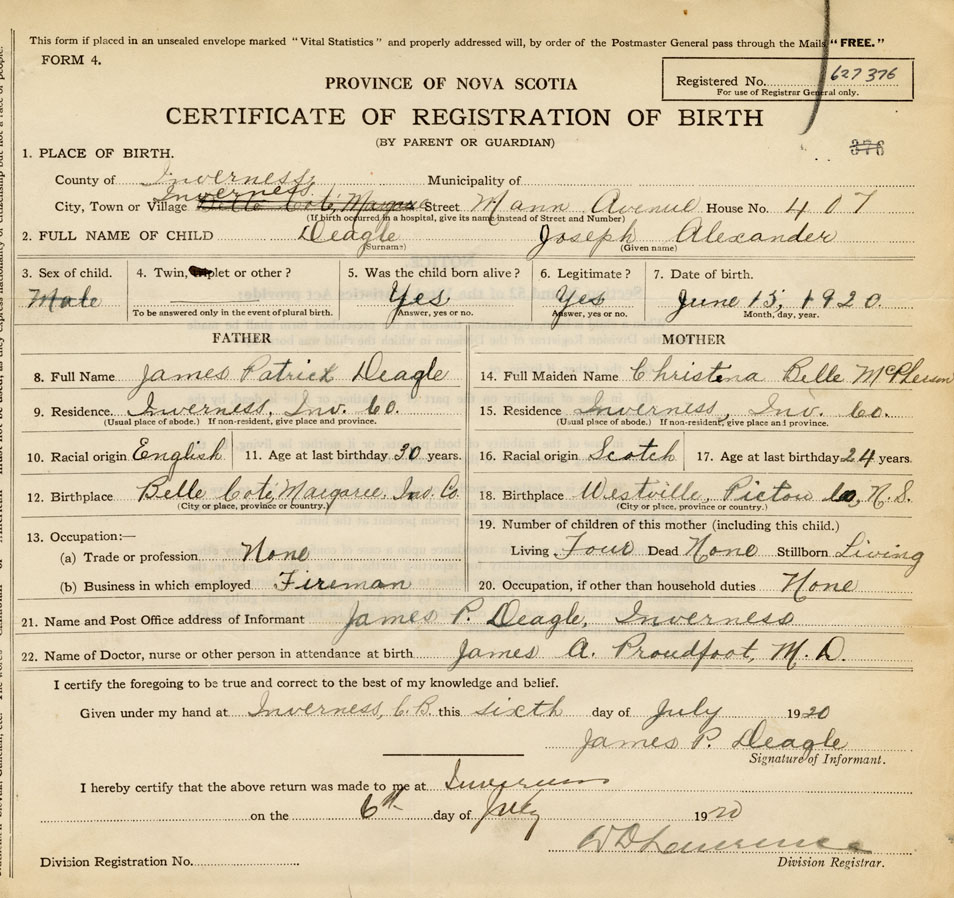 This form if placed in an unsealed envelope marked "Vital Statistics" and properly addressed will, by order of the Postmaster General pass through the Mails "FREE."
FORM 4.
Registered No. 627376
For use of Registrar General only.
PROVINCE OF NOVA SCOTIA
CERTIFICATE OF REGISTRATION OF BIRTH
(BY PARENT OR GUARDIAN)
376
1. PLACE OF BIRTH.
County of Inverness Municipality of
Inverness.
City, Town or Village Belle Cote, Margaree Street Mann Avenue House No. 407
(If birth occurred in a hospital, give its name instead of Street and Number)
2. FULL NAME OF CHILD Deagle Joseph Alexander
(Surname) (Given name)
3. Sex of child. 4. Twin, triplet or other? 5. Was the child born alive? 6. Legitimate? 7. Date of birth.
Male Yes Yes June 15, 1920.
To be answered only in the event of plural birth. Answer, yes or no. Answer, yes or no. Month, day, year.
FATHER MOTHER
8. Full Name James Patrick Deagle 14. Full Maiden Name Christena Belle McPherson
9. Residence. Inverness, Inv. Co. 15. Residence Inverness, Inv. Co.
(Usual place of abode.) If non-resident, give place and province. (Usual place of abode.) If non-resident, give place and province.
10. Racial origin English 11. Age at last birthday 30 years. 16. Racial origin Scotch 17. Age at last birthday 24 years.
12. Birthplace Belle Cote, Margaree, Inv. Co 18. Birthplace Westville, Pictou Co, N.S.
(City or place, province or country.) (City or place, province or country.)
19. Number of children of this mother (including this child.)
13. Occupation:—
(a) Trade or profession None Living Four Dead None Stillborn Living
(b) Business in which employed Fireman 20. Occupation, if other than household duties None
21. Name and Post Office address of Informant James P. Deagle, Inverness
22. Name of Doctor, nurse or other person in attendance at birth James A. Proudfoot, M.D.
I certify the foregoing to be true and correct to the best of my knowledge and belief.
Given under my hand at Inverness, C.B. this sixth day of July 1920
James P. Deagle
Signature of Informant.
I hereby certify that the above return was made to me at Inverness
on the 6th day of July 1920
W D Lawrence
Division Registration No. Division Registrar.